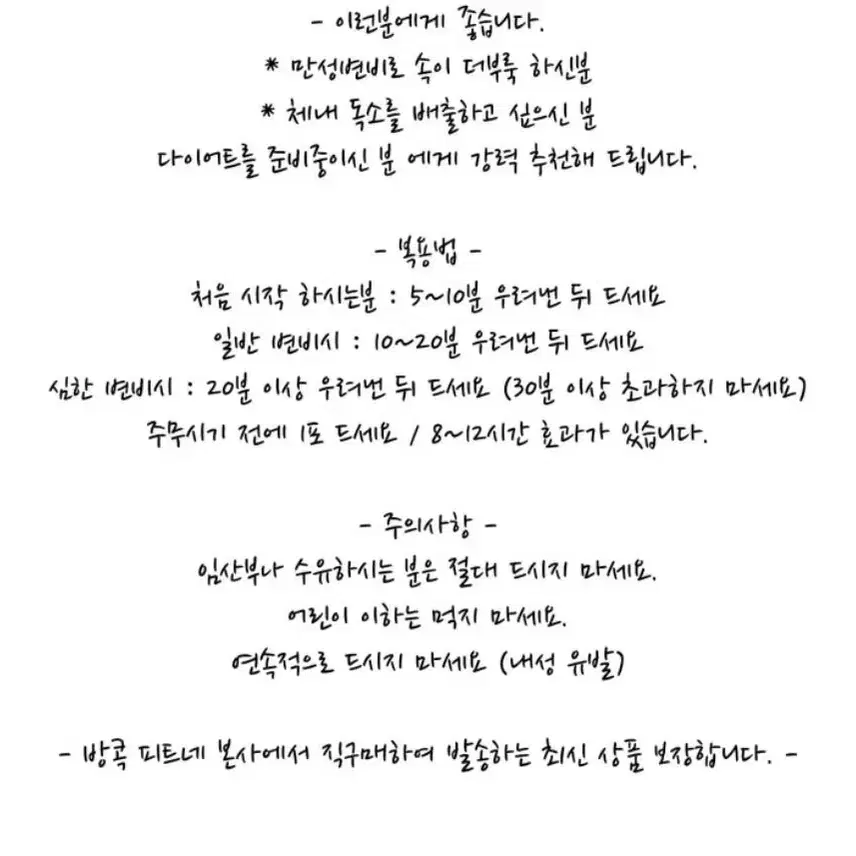 - 이런분에게 좋습니다.
* 만성변비로 속이 더부룩 하신분
* 체내 독소를 배출하고 싶으신 분
다이어트를 준비중이신 분 에게 강력 추천해 드립니다.
- 복용법 -
처음 시작 하시는분 : 5~10분 우려낸 뒤 드세요
일반 변비시 : 10~20분 우려낸 뒤 드세요
심한 변비시 : 20분 이상 우려낸 뒤 드세요 (30분 이상 초과하지 마세요)
주무시기 전에 1포 드세요 / 8~12시간 효과가 있습니다.
- 주의사항 -
임산부나 수유하시는 분은 절대 드시지 마세요.
어린이 이하는 먹지 마세요.
연속적으로 드시지 마세요 (내성 유발)
- 방콕 피트네 본사에서 직구매하여 발송하는 최신 상품 보장합니다. -